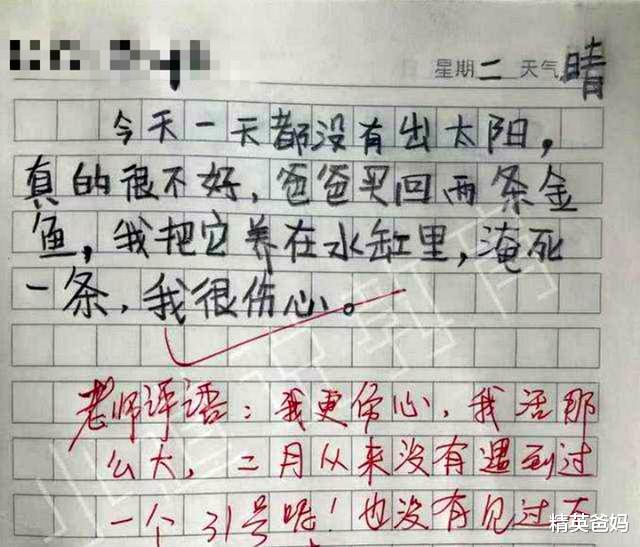 星期二 天气晴
今天一天都没有出太阳,
真的很不好,爸爸买回两条金
鱼,我把它养在水缸里,淹死
一条,我很伤心。
老师评语:我更伤心,我活那
公大,二月从来没有遇到过
一个31号呢!也没有见过下
精英爸妈